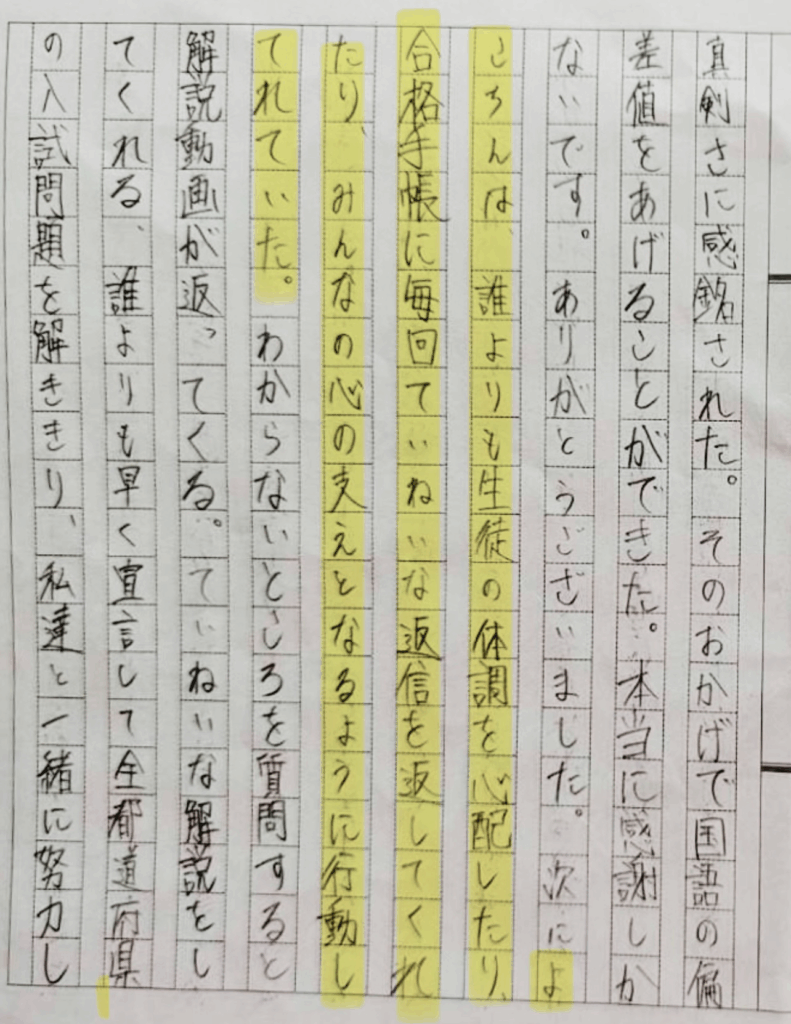 真剣さに感銘された。そのおかげで国語の偏
差値をあげることができた。本当に感謝しか
ないです。ありがとうございました。次によ
こちんは、誰よりも生徒の体調を心配したり、
合格手帳に毎回ていねいな返信を返してくれ
たり、みんなの心の支えとなるように行動し
てれていた。わからないところを質問すると
解説動画が返ってくる。ていねいな解説をし
てくれる、誰よりも早く宣言して全都道府県
の入試問題を解ききり、私達と一緒に努力し